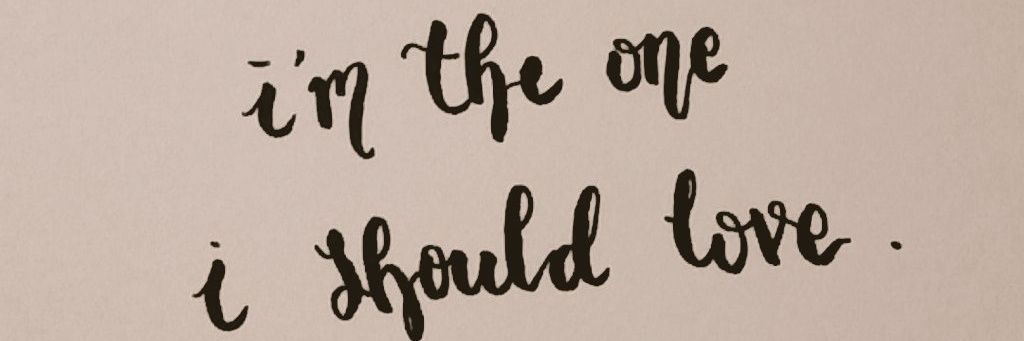 i'm the one
i should love.